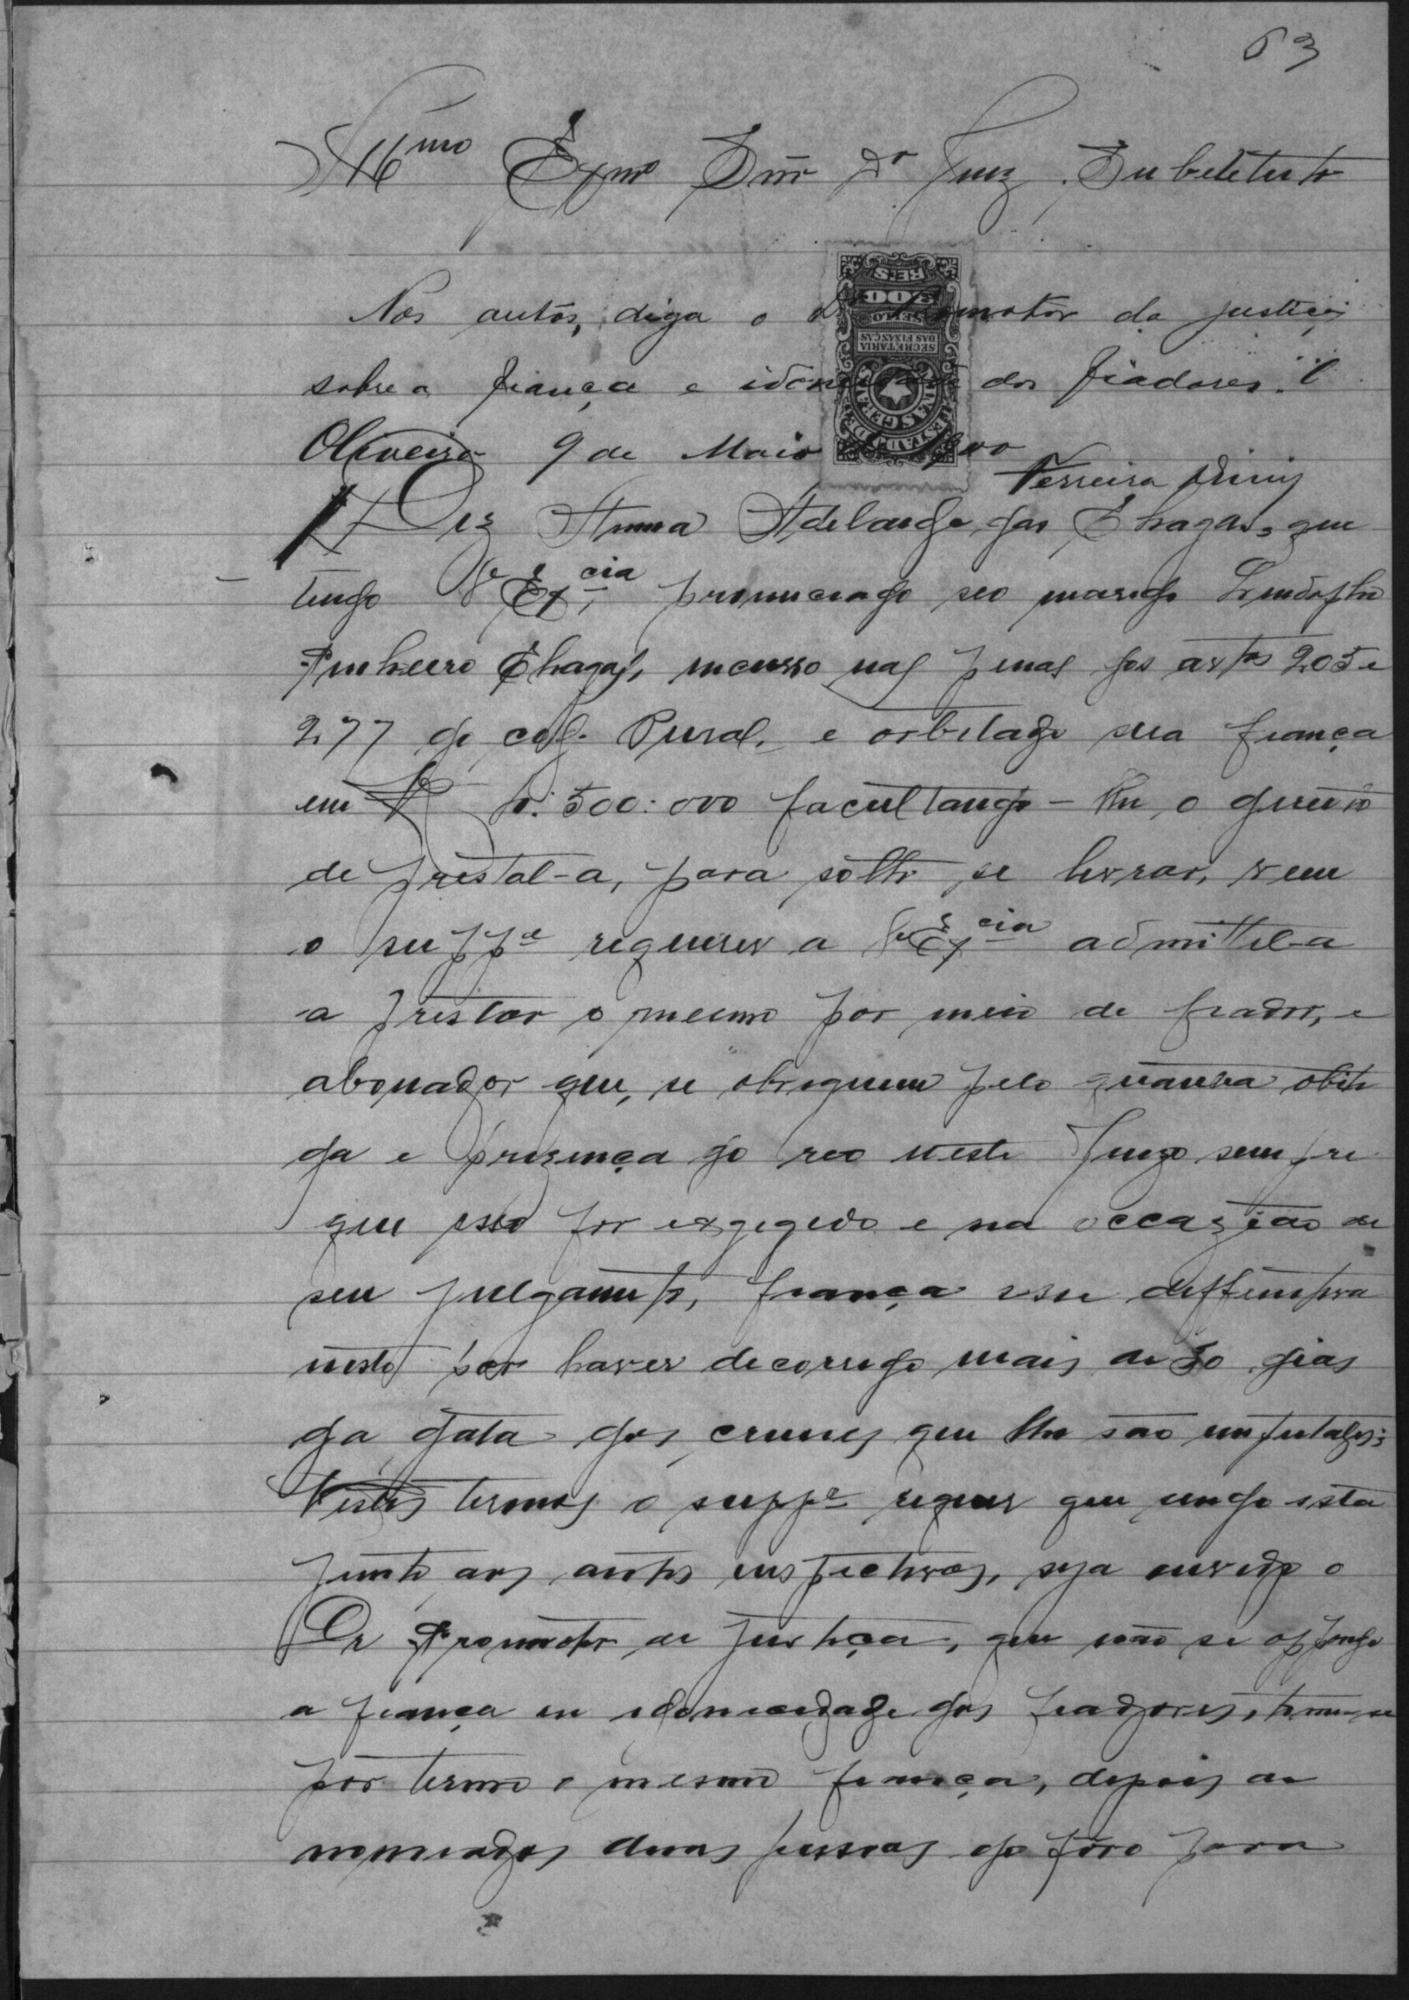 63
Illmo Exmo Snr Dr Juiz Substituto
Nos autos, diga o Dr Promotor da justiça
sobre a fiança e idoneidade dos fiadores.
Oliveira 9 de Maio de 1900
Ferreira Diniz
RÉIS
300
SELLO
SECRETARIA
DAS FINANÇAS
ESTADO DE MINAS GERAES
Diz Anna Adelaide das Chagas, que
tendo Va Excia pronunciado seo marido Lindolpho
Pinheiro Chagas, incurso nas penas dos artos 205 e
277 do cod. Penal, e arbitado sua fiança
em 500:000 facultando-lhe o direito
de prestal-a, para solto se livrar, vem
o suppe requerer a Va Excia admittil-a
a prestar o mesmo por meio de fiador, e
abonador que, se obriguem pelo quantia
da e prezença do reo neste Juizo sempre
que isso for exgegido e na occazião de
seu julgamto, fiança essa
neste por haver decorrido mais de 30 dias
da data dos crimes que lhe são imputados;
Nestes termos o suppe requer que sendo esta
junto aos autos respectivos, seja ouvido o
Dr Promotor de Justiça, que não se oppondo
a fiança ou idoneidade dos fiadores, tome-se
por termo a mesma fiança, depois de
nomeados duas pessoas do fôro para